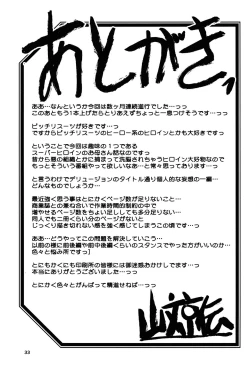 あとがき。
ああ…なんというか今回は数ヶ月連続進行でした…っっ
このあともう1本上げたらとりあえずちょっと一息つけそうです…っっ
ピッチリスーツが好きです…っ
ですからピッチリスーツのヒーロー系のヒロインとかも大好きですっ
ということで今回は趣味の1つである
スーパーヒロインのお母さん話なのですっ
昔から悪の組織とかに捕まって洗脳されちゃうヒロイン大好物なので
もっとそういう番組やって欲しいなあ…と常々思ってあります…っ
と言うわけでデリュージョンのタイトル通り個人的な妄想の一編…
どんなものでしょうか…っ
最近強く思う事はとにかくページ数が足りないこと…
商業誌との兼ね合いで作業時間的制約の中で
増やせるページ数をちょい足ししても多分足りない…
同人でも二冊くらい分のページがないと
じっくり描き切れない感を強く感じてしまうこの頃です…っ
ああ…どうやってこの問題を解決していこう…
以前の様に前後編や前中後編くらいのスタンスでやった方がいいのか…
色々と悩み所ですっ
とにもかくにも印刷所の皆様には御迷惑おかけしてます…っ
本当にありがとうございました…っっ
とにかく色々とがんばって精進せねば…っっ
33